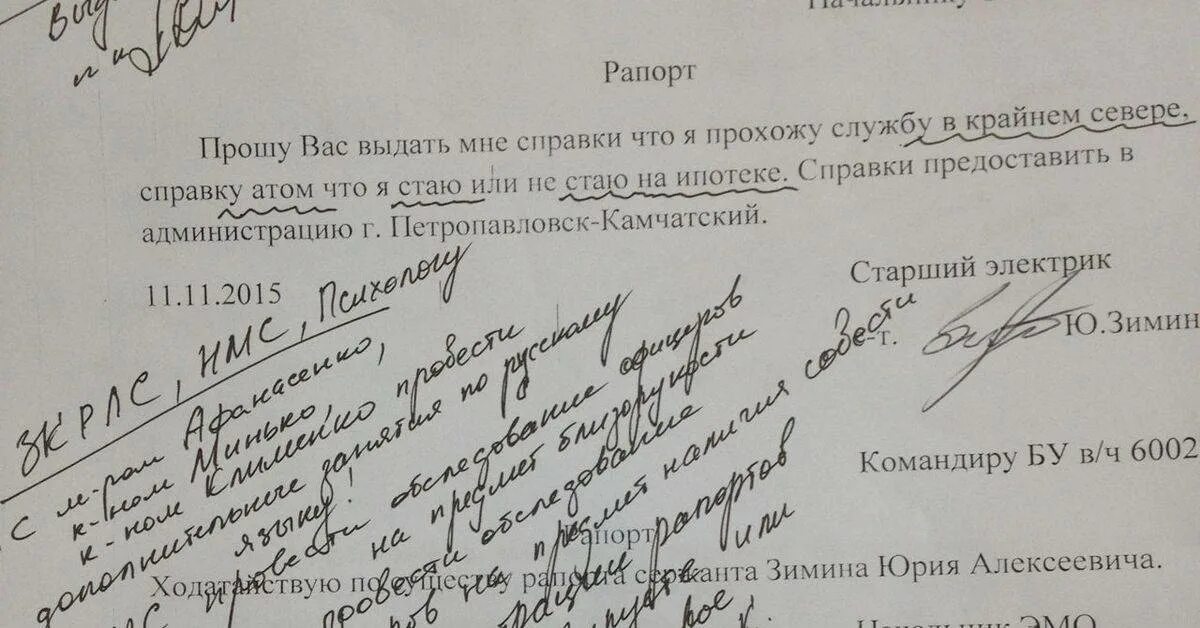 Начальнику
Рапорт
Прошу Вас выдать мне справки что я прохожу службу в крайнем севере,
справку атом что я стаю или не стаю на ипотеке. Справки предоставить в
администрацию г. Петропавловск-Камчатский.
11.11.2015
Старший электрик
с-т.
Ю.Зимин
ЗКРЛС, НМС, Психологу
С м-ром Афанасенко,
к-ном Минько,
к-ном Клименко провести
дополнительные занятия по русскому
языку!
провести обследование офицеров
на предмет близорукости
провести обследование
на предмет наличия совести
рапортов
или
Командиру БУ в/ч 6002
рапорт
Ходатайствую по существу рапорта сержанта Зимина Юрия Алексеевича.
Начальник ЭМО